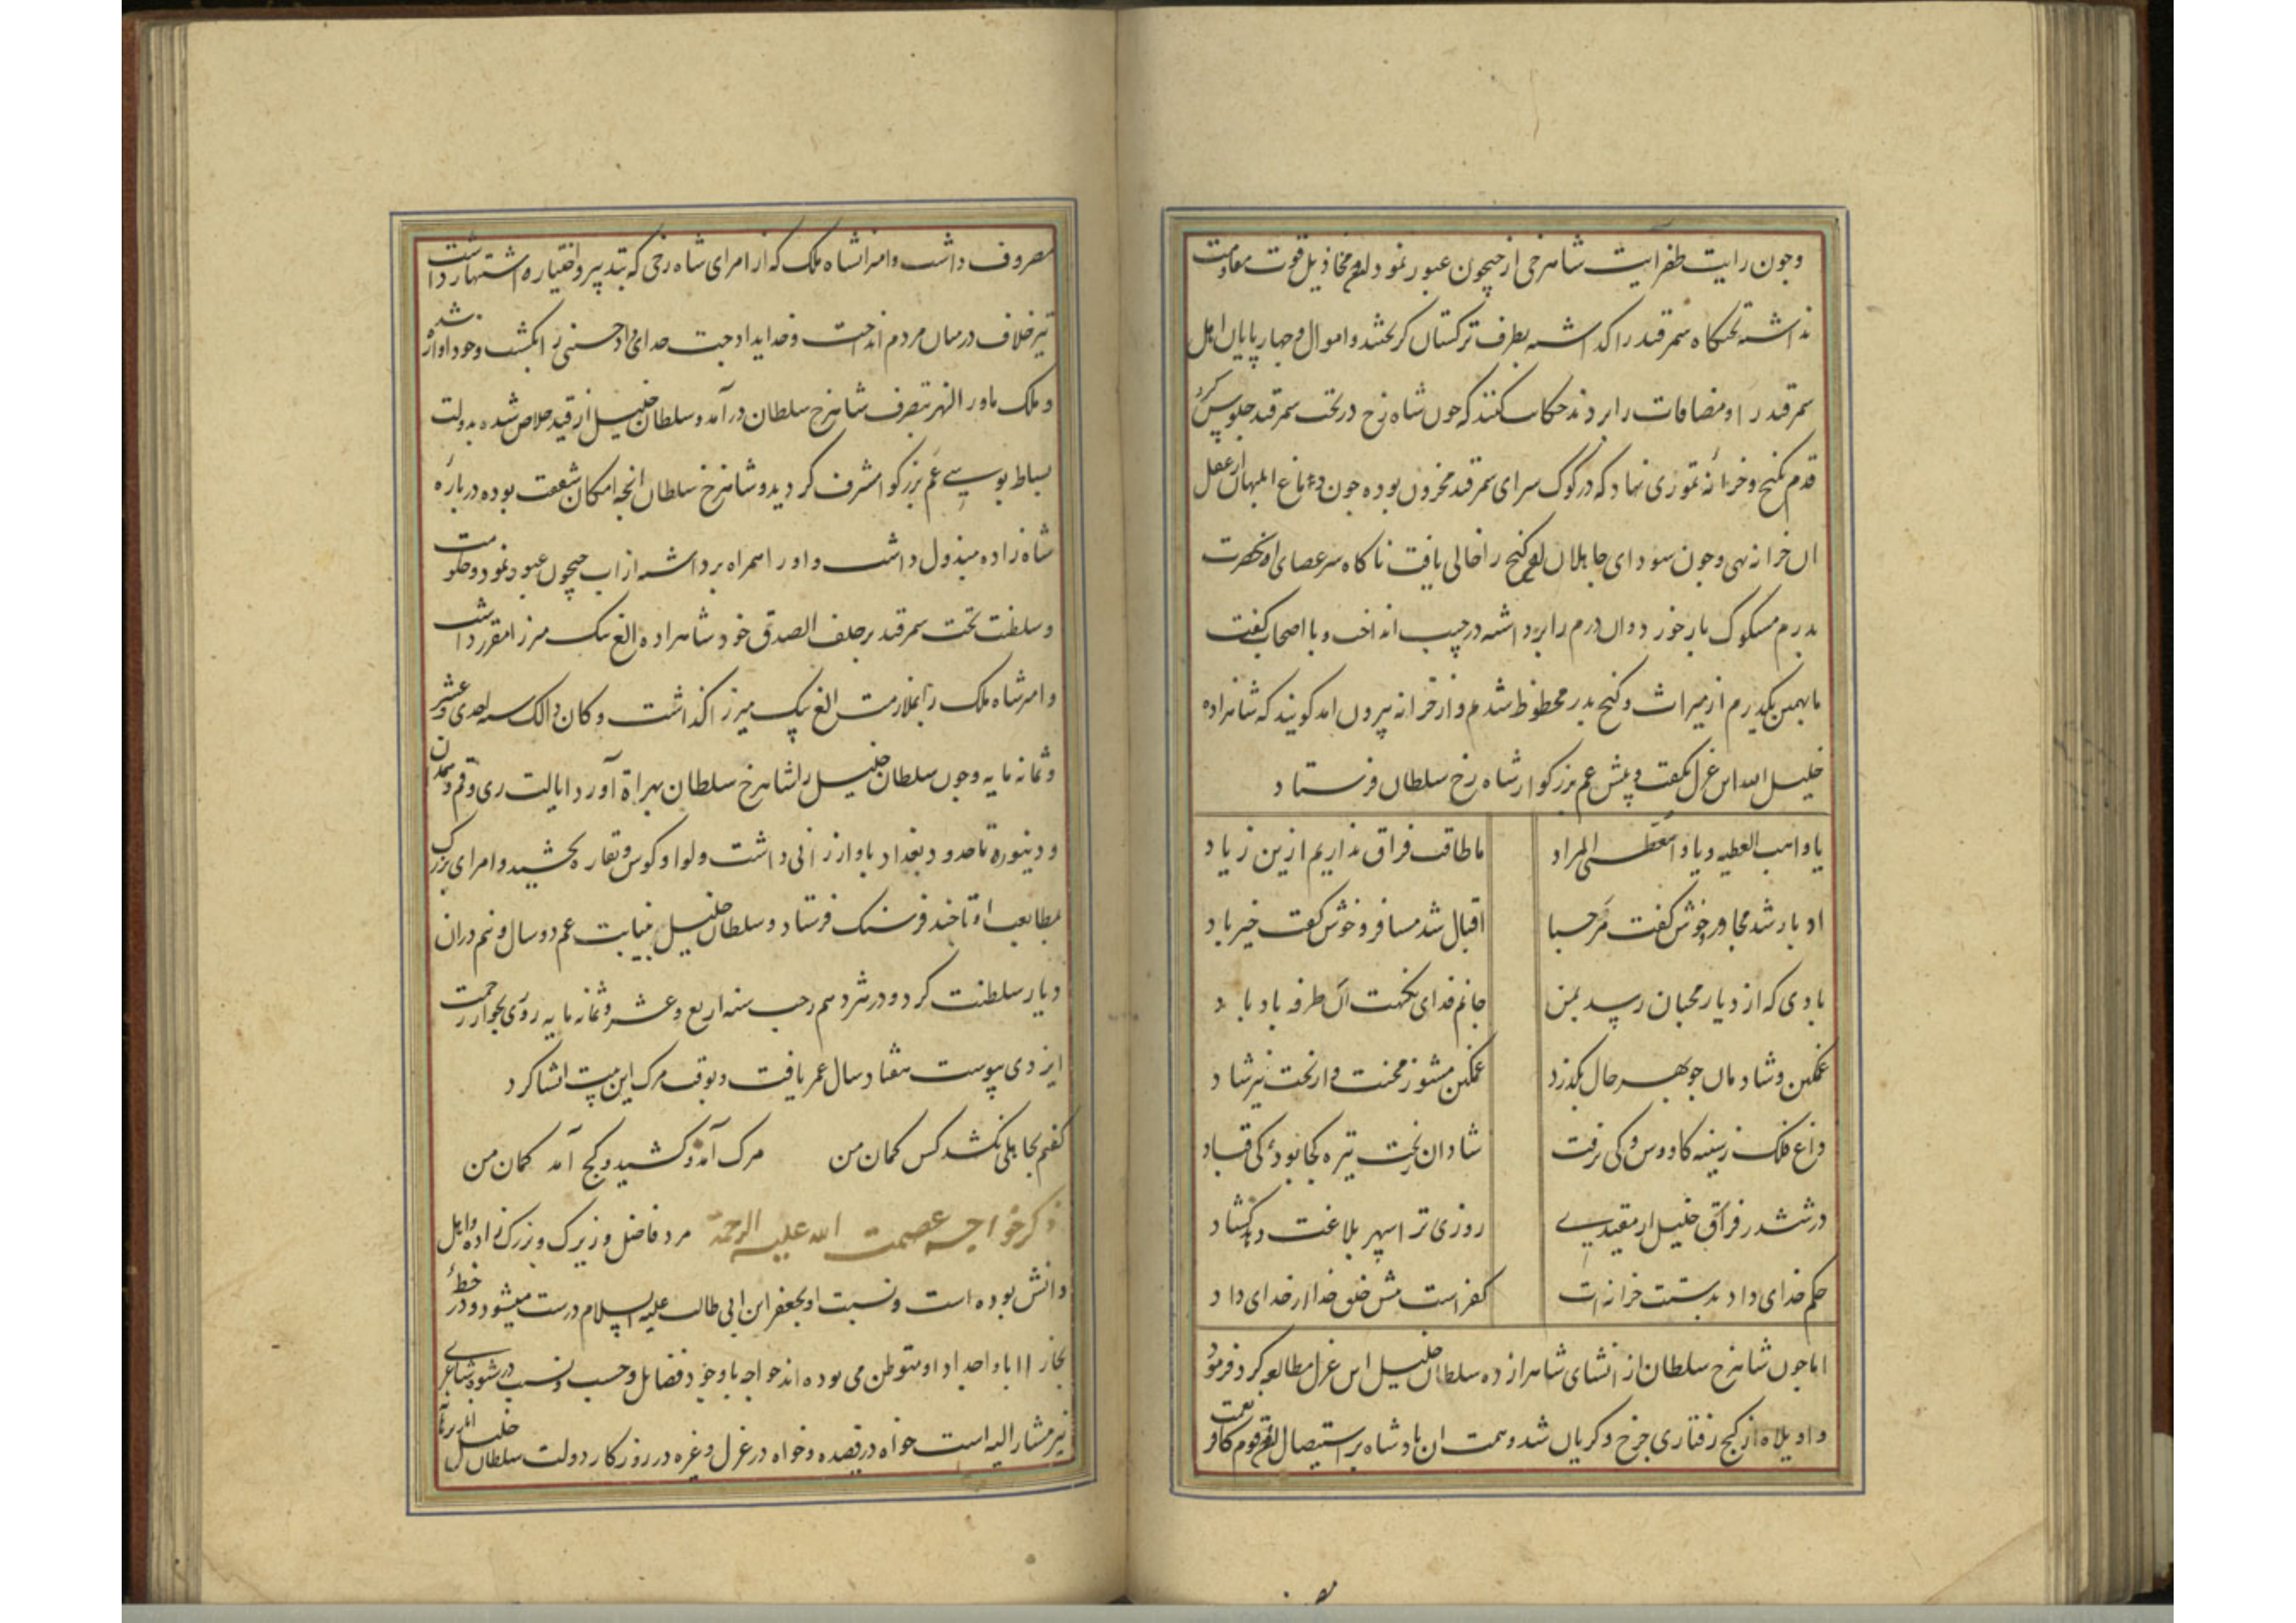 وچون رایت ظفرآیت شاهرخی از جیحون عبور نمود مخاذیل قوت مقاومت
نداشته تختکاه سمرقند را کداشته بطرف ترکستان کریختند و اموال و چهارپایان اهل
سمرقند را و مضافات را بردند حکایت کنند که چون شاه رخ در تخت سمرقند جلوس کرد
قدم بکنج و خزانه تموری نهاد که در کوک سرای سمرقند مخزون بوده چون دماغ ابلهان از عقل
آن خزانه تهی وچون سودای جاهلان کنج را خالی یافت ناکاه سر عصای او
بدرم مسکوک بازخورد وان درم را برداشته در جیب انداخت و با اصحاب کفت
ما بهمین یکدرم از میراث و کنج پدر محظوظ شدیم و از خزانه بیرون امد کویند که شاهزاده
خلیل الله این غزل بکفت و پیش عم بزرکوار شاه رخ سلطان فرستاد
یا واهب العطیه و یا معطی المراد ما طاقت فراق نداریم ازین زیاد
ادبار شد مجاور و خوش کفت مرحبا اقبال شد مسافر و خوش کفت خیرباد
بادی که از دیار محبان رسید بمن جانم فدای نکهت آن طرفه باد باد
غمکین و شادمان چو بهر حال بکذرد غمکین مشو ز محنت و از بخت نیز شاد
داغ فلک ز سینه کاووس و کی نرفت شادان ز بخت تیره کجا بود کی قباد
در ششدر فراق خلیل ار مقیدی روزی ترا سپهر بلاغت دهد کشاد
حکم خدای داد بدستت خزانه‌ات کفر است پیش خلق خدا از خدای داد
اما چون شاهرخ سلطان از انشای شاهزاده سلطان خلیل این غزل مطالعه کرد فرمود
واویلاه از کج رفتاری چرخ و کریان شد و همت ان پادشاه بر استیصال قوم کافر نعمت
مصروف داشت و امیر شاه ملک که از امرای شاه رخی که بتدبیر و اختیار اشتهار داشت
تیر خلاف در میان مردم انداخت و خدایداد جت خدای داد حسنی را بکشت و خود اواره شد
و ملک ماورالنهر بتصرف شاهرخ سلطان درآمد و سلطان خلیل از قید خلاص شده بدولت
بساط بوسی عم بزرکوار مشرف کردید و شاهرخ سلطان انچه امکان شفقت بوده درباره
شاه زاده مبذول داشت و او را همراه برداشته از اب جیحون عبور نمود و حکومت
و سلطنت تخت سمرقند بر خلف الصدق خود شاهزاده الغ بیک میرزا مقرر داشت
و امیر شاه ملک را بملازمت الغ بیک میرزا کذاشت و کان ذالک سنه احدی عشر
و ثمانه مایه وچون سلطان خلیل را شاهرخ سلطان بهراة آورد ایالت ری و قم و همدان
و دینور تا حدود بغداد باو ارزانی داشت و لوا و کوس و نقاره بخشید و امرای بزرک
بمطابعت او تا چند فرسنک فرستاد و سلطان خلیل بنیابت عم دو سال و نیم دران
دیار سلطنت کرد و در شردهم رجب سنه اربع و عشر و ثمانه مایه روی بجوار رحمت
ایزدی پیوست هفتاد سال عمر یافت و بوقت مرک این بیت انشا کرد
کفتم بجاهلی نکشد کس کمان من مرک آمد و کشید و کج آمد کمان من
ذکر خواجه عصمت الله علیه الرحمة مرد فاضل و زیرک و بزرک زاده و اهل
دانش بوده است و نسبت او بجعفر ابن ابی طالب علیه السلام درست میشود و در خطه
بخارا اباد اجداد او متوطن می بوده اند خواجه باوجود فضایل و حسب و نسب در شیوه شاعری
نیز مشار الیه است خواه در قصیده و خواه در غزل و غیره در روزکار دولت سلطان خلیل